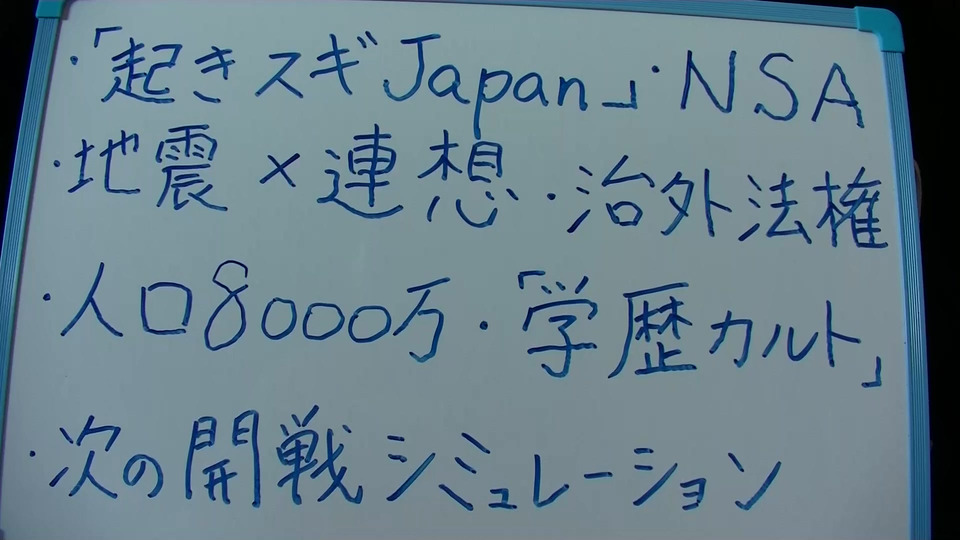 ・「起きスギJapan」・NSA
・地震×連想・治外法権
・人口8000万・「学歴カルト」
・次の開戦シミュレーション